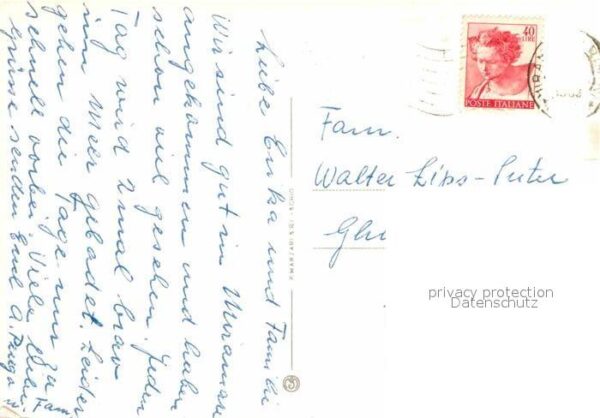 Liebe Erika und Familie
Wir sind gut in Miramare
angekommen und haben
schon viel gesehen. Jeden
Tag wird 2mal brav
im Meer gebadet. Leider
gehen die Tage nur zu
schnell vorbei. Viele liebe
Grüsse senden Euch
Fam.
40
LIRE
POSTE ITALIANE
Fam.
Walter Zips-Suter
P. MARZARI S.R.L. - SCHIO
privacy protection
Datenschutz